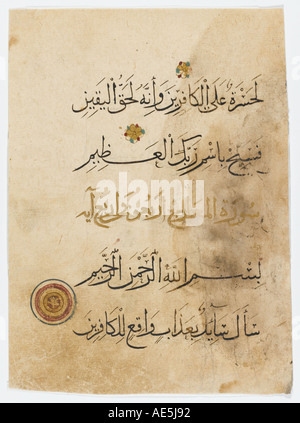 لَحَسْرَةٌ عَلَى الْكَافِرِينَ وَإِنَّهُ لَحَقُّ الْيَقِينِ
فَسَبِّحْ بِاسْمِ رَبِّكَ الْعَظِيمِ
سورة اربعون آية
بِسْمِ اللَّهِ الرَّحْمَنِ الرَّحِيمِ
سَأَلَ سَائِلٌ بِعَذَابٍ وَاقِعٍ لِلْكَافِرِينَ